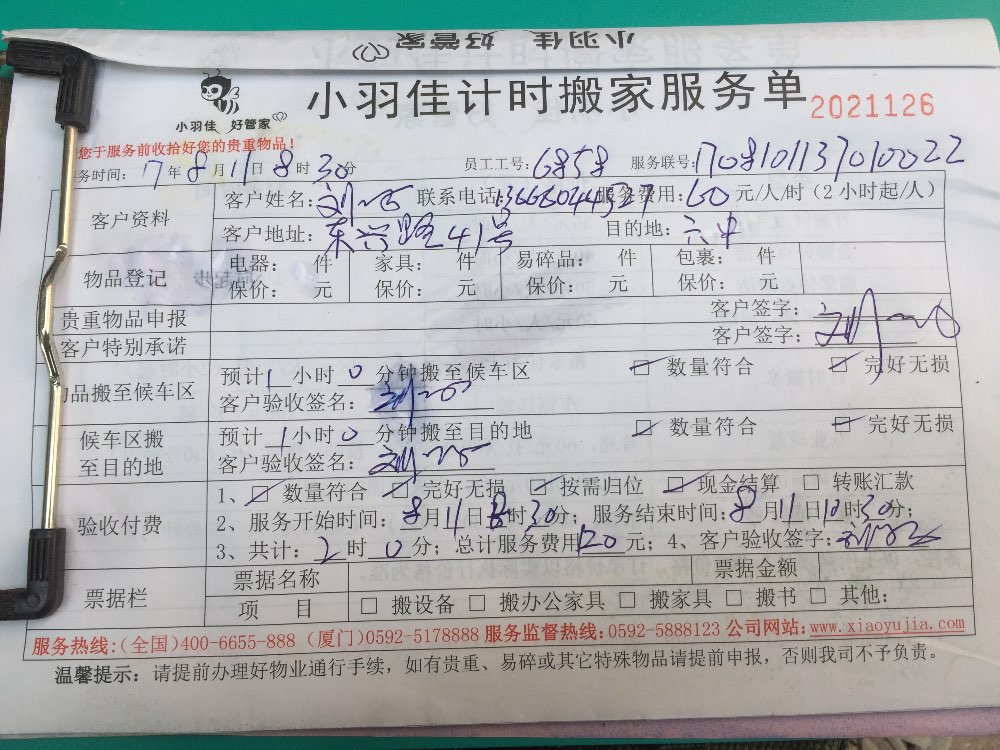 小羽佳 好管家
小羽佳 好管家
小羽佳计时搬家服务单 2021126
您于服务前收拾好您的贵重物品！
务时间：17年8月11日8时30分 员工工号：6858 服务联号：1708101137010022
客户资料 客户姓名： 联系电话： 服务费用：60元/人/时（2小时起/人）
客户地址：东兴路41号 目的地：六中
物品登记 电器： 件 家具： 件 易碎品： 件 包裹： 件
保价： 元 保价： 元 保价： 元 保价： 元
贵重物品申报 客户签字：
客户特别承诺 客户签字：
品搬至候车区 预计1小时0分钟搬至候车区 ☑ 数量符合 ☑ 完好无损
客户验收签名：
候车区搬至目的地 预计1小时0分钟搬至目的地 ☑ 数量符合 ☑ 完好无损
客户验收签名：
验收付费 1、☑ 数量符合 ☑ 完好无损 ☑ 按需归位 ☑ 现金结算 □ 转账汇款
2、服务开始时间：8月11日8时30分；服务结束时间：8月11日10时30分；
3、共计：2时0分；总计服务费用120元；4、客户验收签字：
票据栏 票据名称 票据金额
项 目 □ 搬设备 □ 搬办公家具 □ 搬家具 □ 搬书 □ 其他：
服务热线：(全国)400-6655-888 (厦门)0592-5178888 服务监督热线：0592-5888123 公司网站：www.xiaoyujia.com
温馨提示：请提前办理好物业通行手续，如有贵重、易碎或其它特殊物品请提前申报，否则我司不予负责。